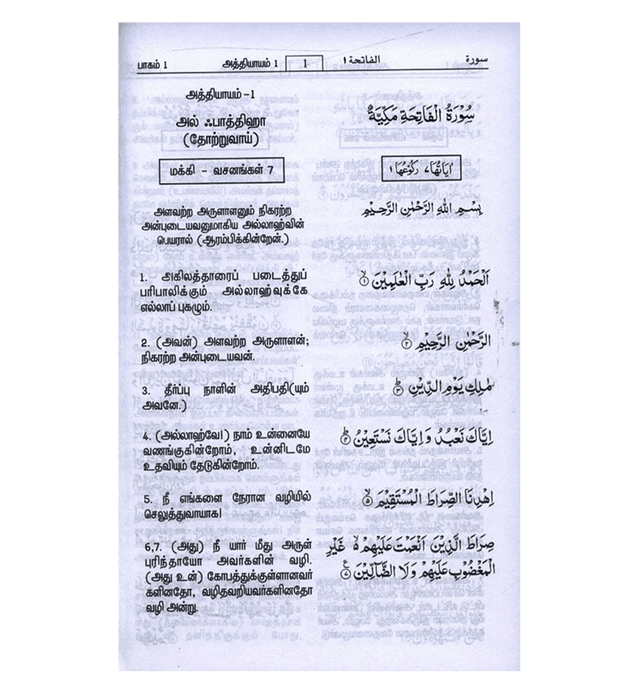 பாகம் 1 அத்தியாயம் 1 1 الفاتحة ١ سورة
அத்தியாயம் -1
அல் ஃபாத்திஹா
(தோற்றுவாய்)
மக்கி - வசனங்கள் 7
அளவற்ற அருளாளனும் நிகரற்ற
அன்புடையவனுமாகிய அல்லாஹ்வின்
பெயரால் (ஆரம்பிக்கின்றேன்.)
1. அகிலத்தாரைப் படைத்துப்
பரிபாலிக்கும் அல்லாஹ்வுக்கே
எல்லாப் புகழும்.
2. (அவன்) அளவற்ற அருளாளன்;
நிகரற்ற அன்புடையவன்.
3. தீர்ப்பு நாளின் அதிபதி(யும்
அவனே.)
4. (அல்லாஹ்வே!) நாம் உன்னையே
வணங்குகின்றோம், உன்னிடமே
உதவியும் தேடுகின்றோம்.
5. நீ எங்களை நேரான வழியில்
செலுத்துவாயாக!
6,7. (அது) நீ யார் மீது அருள்
புரிந்தாயோ அவர்களின் வழி.
(அது உன்) கோபத்துக்குள்ளானவர்
களினதோ, வழிதவறியவர்களினதோ
வழி அன்று.
سُوْرَةُ الْفَاتِحَةِ مَكِّيَّةٌ
اٰيَاتُهَا ٧ رُكُوْعُهَا ١
بِسْمِ اللهِ الرَّحْمٰنِ الرَّحِيْمِ
اَلْحَمْدُ لِلّٰهِ رَبِّ الْعٰلَمِيْنَ ۙ١
الرَّحْمٰنِ الرَّحِيْمِ ۙ٢
مٰلِكِ يَوْمِ الدِّيْنِ ؕ٣
اِيَّاكَ نَعْبُدُ وَاِيَّاكَ نَسْتَعِيْنُ ؕ٤
اِهْدِنَا الصِّرَاطَ الْمُسْتَقِيْمَ ۙ٥
صِرَاطَ الَّذِيْنَ اَنْعَمْتَ عَلَيْهِمْ ۙ٦ غَيْرِ
الْمَغْضُوْبِ عَلَيْهِمْ وَلَا الضَّآلِّيْنَ ٧